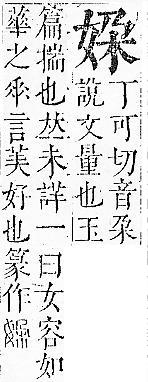 㛆
丁可切音朶
說文量也玉
篇揣也𠀤未詳一曰女容如
華之朶言美好也篆作